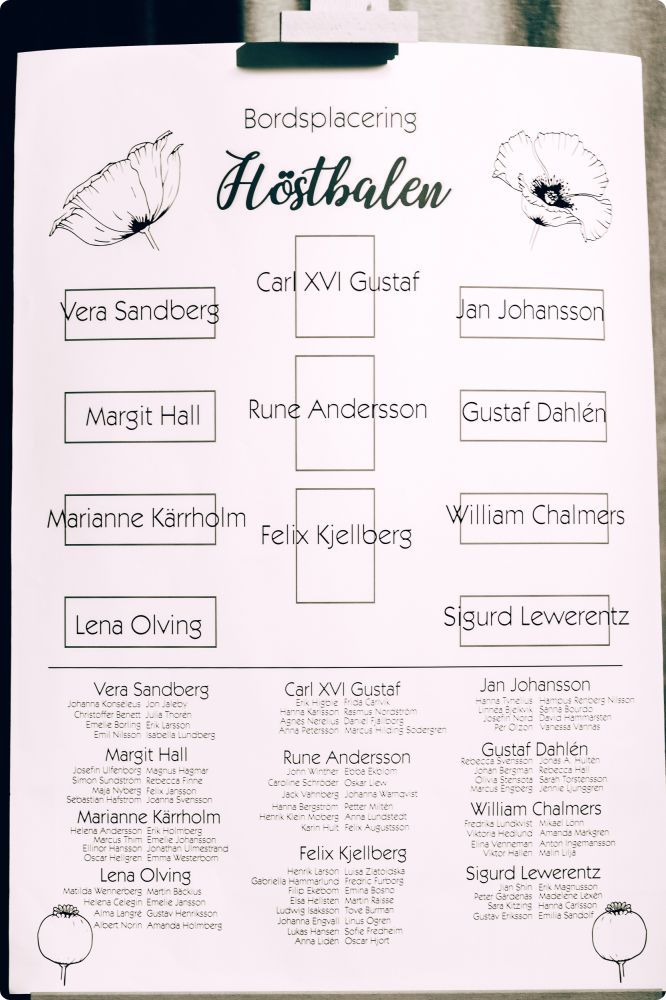 Bordsplacering
Höstbalen
Carl XVI Gustaf
Vera Sandberg
Jan Johansson
Margit Hall
Rune Andersson
Gustaf Dahlén
Marianne Kärrholm
Felix Kjellberg
William Chalmers
Lena Olving
Sigurd Lewerentz
Vera Sandberg
Johanna Konseleus Jon Jaleby
Christoffer Benett Julia Thorén
Emelie Börling Erik Larsson
Emil Nilsson Isabella Lundberg
Margit Hall
Josefin Ulfenborg Magnus Hagmar
Simon Sundström Rebecca Finne
Maja Nyberg Felix Jansson
Sebastian Hafström Joanna Svensson
Marianne Kärrholm
Helena Andersson Erik Holmberg
Marcus Thim Emelie Johansson
Ellinor Hansson Jonathan Ulmestrand
Oscar Hellgren Emma Westerborn
Lena Olving
Matilda Wenneberg Martin Bäckius
Helena Celegin Emelie Jansson
Alma Langré Gustav Henriksson
Albert Norin Amanda Holmberg
Carl XVI Gustaf
Erik Higbie Frida Carlvik
Hanna Karlsson Rasmus Nordström
Agnes Nerelius Daniel Fjällborg
Anna Petersson Marcus Hilding Södergren
Rune Andersson
John Winther Ebba Ekblom
Caroline Schröder Oskar Liew
Jack Vahnberg Johanna Warnqvist
Hanna Bergström Petter Miltén
Henrik Klein Moberg Anna Lundstedt
Karin Huit Felix Augustsson
Felix Kjellberg
Henrik Larson Luisa Zlatoidska
Gabriella Hammarlund Fredric Furborg
Filip Ekebom Emina Bosno
Elsa Hellsten Martin Raisse
Ludwig Isaksson Tove Burman
Johanna Engvall Linus Ogren
Lukas Hansen Sofie Fredheim
Anna Lidén Oscar Hjort
Jan Johansson
Hanna Tynelius Hampus Renberg Nilsson
Linnea Bjelkvik Sanna Bourdo
Josefin Nord David Hammarsten
Per Olzon Vanessa Vannas
Gustaf Dahlén
Rebecca Svensson Jonas A. Hultén
Johan Bergman Rebecca Hall
Olivia Stensöta Sarah Torstensson
Marcus Engberg Jennie Ljunggren
William Chalmers
Fredrika Lundkvist Mikael Lönn
Viktoria Hedlund Amanda Markgren
Elina Venneman Anton Ingemansson
Viktor Hallen Malin Lilja
Sigurd Lewerentz
Jian Shin Erik Magnusson
Peter Gärdenäs Madelene Lexén
Sara Kitzing Hanna Carlsson
Gustav Eriksson Emilia Sandolf